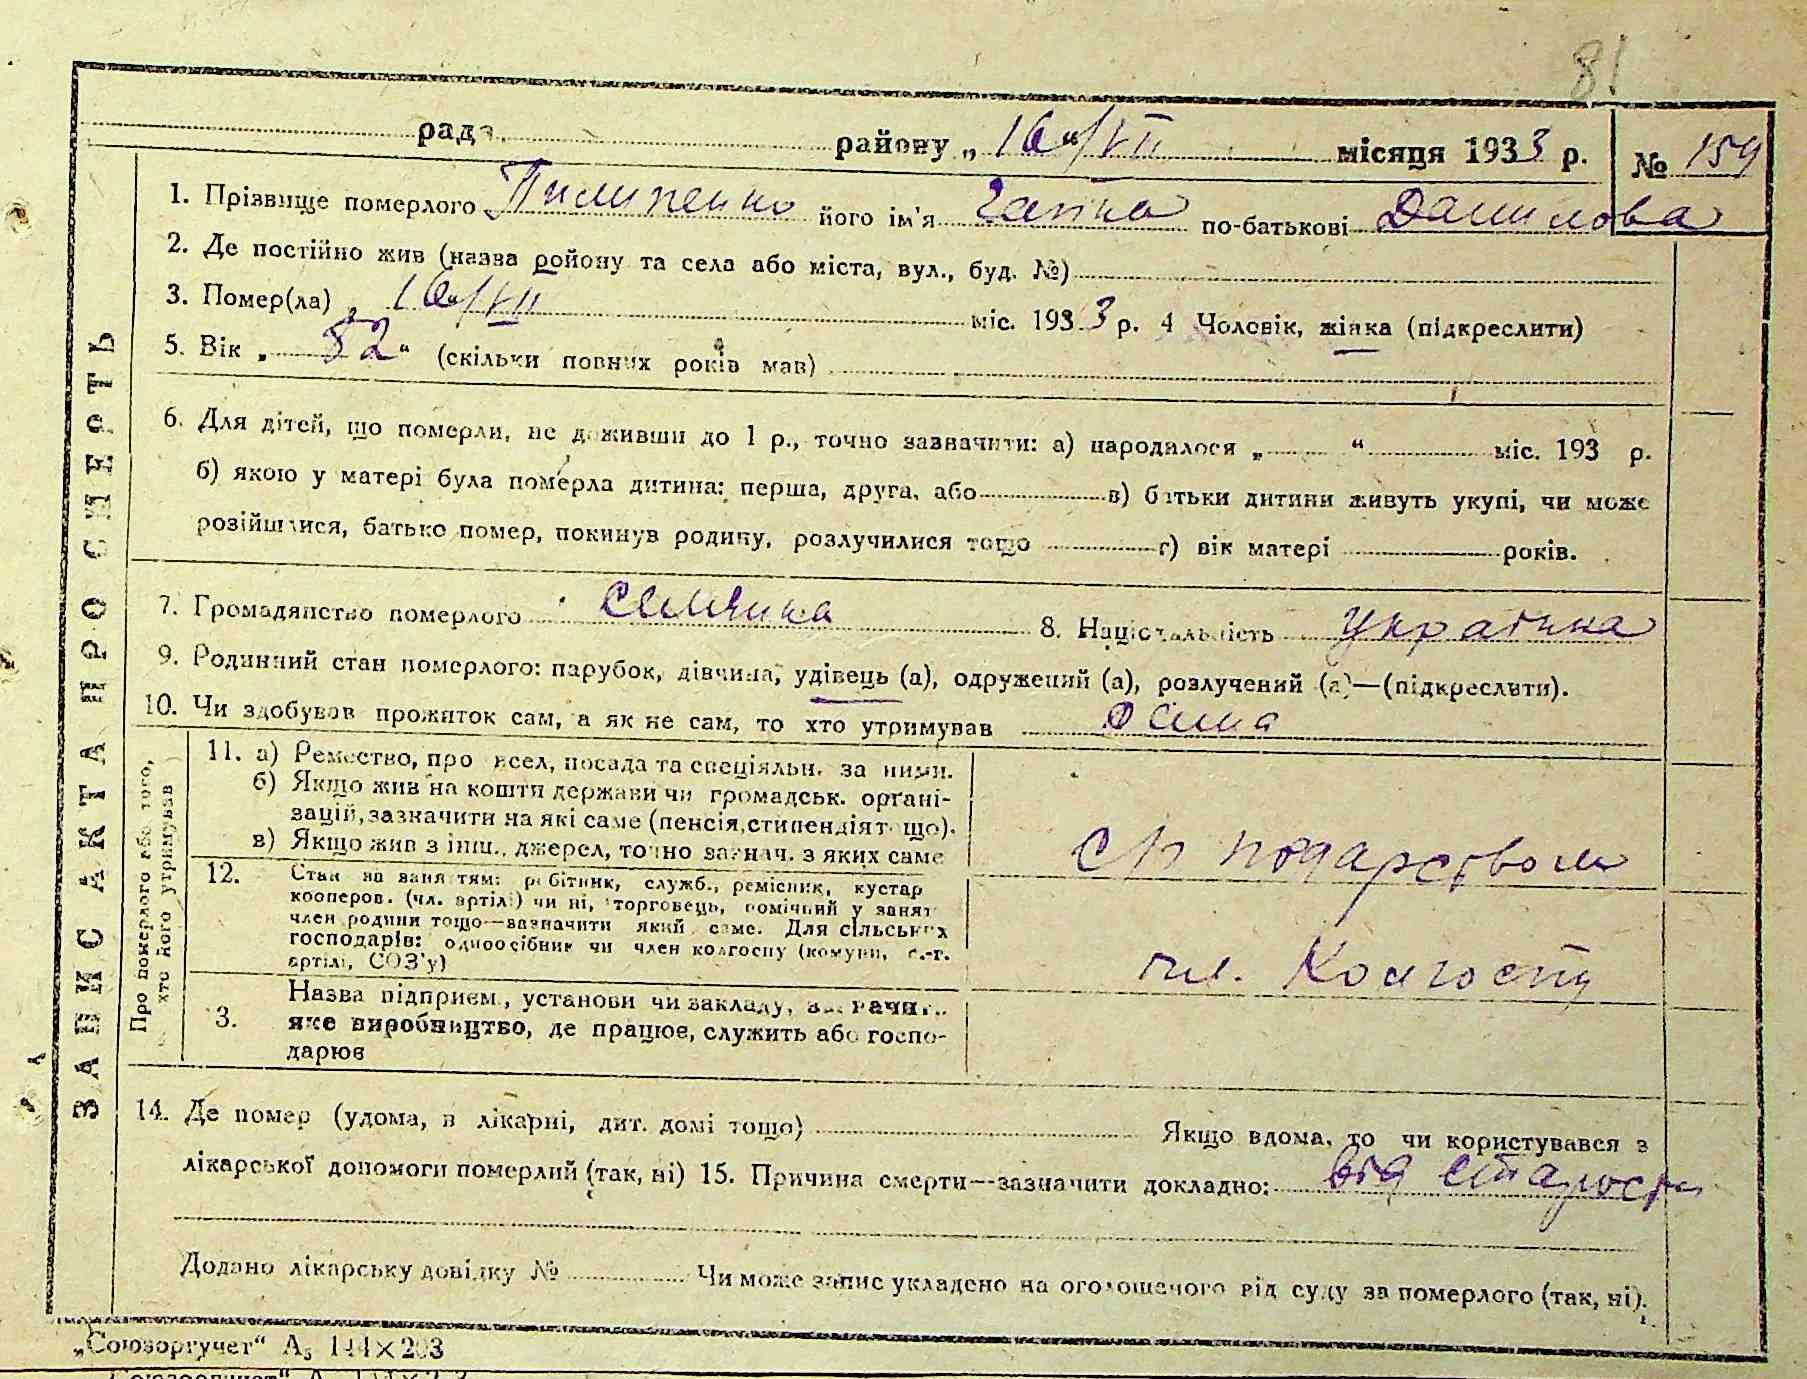 81
рада района „ 16 “ / VII місяця 1933 р. № 159
1. Прізвище померлого Пилипенко його ім'я по-батькові Данилова
2. Де постійно жив (назва району та села або міста, вул., буд. №)
3. Помер(ла) „ 16 “ / VII міс. 1933 р. 4 Чоловік, жінка (підкреслити)
5. Вік „ 82 “ (скільки повних років мав)
6. Для дітей, що померли, не доживши до 1 р., точно зазначити: а) народилося „ “ міс. 193 р.
б) якою у матері була померла дитина: перша, друга, або в) батьки дитини живуть укупі, чи може
розійшлися, батько помер, покинув родину, розлучилися тощо г) вік матері років.
7. Громадянство померлого 8. Національність Україника
9. Родинний стан померлого: парубок, дівчина, удівець (а), одружений (а), розлучений (а)—(підкреслити).
10. Чи здобував прожиток сам, а як не сам, то хто утримував сама
ЗАПИС АКТА ПРО СМЕРТЬ
Про померлого або того,
хто його утримував
11. а) Ремество, про­есел, посада та спеціяльн. за ними.
б) Якщо жив на кошти держави чи громадськ. органі-
зацій, зазначити на які саме (пенсія, стипендія тощо).
в) Якщо жив з інш. джерел, точно зазнач. з яких саме
господарством
12. Стан за заняттям: робітник, служб., ремісник, кустар
кооперов. (чл. артілі) чи ні, торговець, помічний у занят
член родини тощо—зазначити який саме. Для сільських
господарів: одноосібник чи член колгоспу (комуни, с.-г.
артілі, СОЗ'у)
чл. Колгоспу
3. Назва підприєм., установи чи закладу, зазначит..
яке виробництво, де працює, служить або госпо-
дарює
14. Де помер (удома, в лікарні, дит. домі тощо) Якщо вдома, то чи користувався з
лікарської допомоги померлий (так, ні) 15. Причина смерти—зазначити докладно: від старости
Додано лікарську довідку № Чи може запис укладено на оголошеного від суду за померлого (так, ні).
„Союзоргучет“ А5 144×203